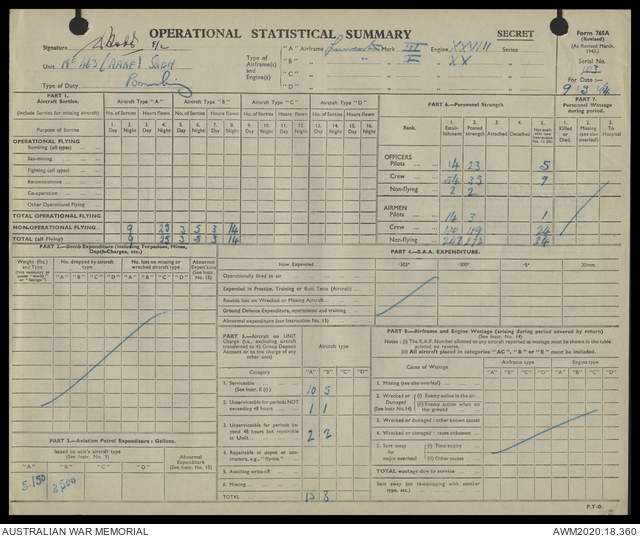 OPERATIONAL STATISTICAL SUMMARY
SECRET
Form 765A
(Revised)
(As Revised March, 1943.)
Serial No.
For Date :-
9 3 44
Signature F/L
Unit No 463 (RAAF) Sqdn
Type of Duty Bombing
Type of Airframe(s) and Engine(s)
"A" Airframe Lancaster Mark III Engine XXVIII Series
"B" " " I " XX "
"C" " " " "
"D" " " " "
PART 1.
Aircraft Sorties.
(Include Sorties for missing aircraft)
Aircraft Type "A" Aircraft Type "B" Aircraft Type "C" Aircraft Type "D"
No. of Sorties Hours flown No. of Sorties Hours flown No. of Sorties Hours flown No. of Sorties Hours flown
1. 2. 3. 4. 5. 6. 7. 8. 9. 10. 11. 12. 13. 14. 15. 16.
Purpose of Sorties Day Night Day Night Day Night Day Night Day Night Day Night Day Night Day Night
OPERATIONAL FLYING
Bombing (all types)
Sea-mining
Fighting (all types)
Reconnaissance
Co-operation
Other Operational Flying
TOTAL OPERATIONAL FLYING
NON-OPERATIONAL FLYING 9 25 3 5 3 14
TOTAL (all flying) 9 25 3 5 3 14
PART 6.—Personnel Strength
Rank. 1. Establishment 2. Posted strength 3. Attached 4. Detached 5. Not available
OFFICERS
Pilots 14 23 5
Crew 54 35 9
Non-flying 2 2
AIRMEN
Pilots 14 3 1
Crew 110 119 24
Non-flying 24
PART 7.
Personnel Wastage during period.
1. Killed or Died. 2. Missing (see also overleaf) 3. To Hospital
PART 2.—Bomb Expenditure (including Torpedoes, Mines, Depth-Charges, etc.)
Weight (lbs.) and Type
No. dropped by aircraft type
No. lost on missing or wrecked aircraft type
Abnormal Expenditure (See Instr. No. 15)
"A" "B" "C" "D" "A" "B" "C" "D"
PART 4.—S.A.A. EXPENDITURE.
How Expended ·303" ·500" 20mm.
Operationally fired in air
Expended in Practice, Training or Butt Tests (Aircraft)
Rounds lost on Wrecked or Missing Aircraft
Ground Defence Expenditure, operational and training
Abnormal expenditure (see Instruction No. 15)
PART 5.—Aircraft on UNIT Charge (i.e., excluding aircraft transferred to 43 Group Deposit Account or to the charge of any other unit)
Aircraft type
Category "A" "B" "C" "D"
1. Serviceable (See Instr. 8 (i) ) 10 5
2. Unserviceable for periods NOT exceeding 48 hours 1 1
3. Unserviceable for periods beyond 48 hours but repairable at Unit 2 2
4. Repairable at depot or contractors, e.g., "fly-ins."
5. Awaiting write-off
6. Missing
TOTAL 13 8
PART 8.—Airframe and Engine Wastage (arising during period covered by return)
(See Instr. No. 14)
Notes : (i) The R.A.F. Number allotted to any aircraft reported as wastage must be shown in the table printed on reverse.
(ii) All aircraft placed in categories "AC," "B" or "E" must be included.
Cause of Wastage Airframe type Engine type
"A" "B" "C" "D" "A" "B" "C" "D"
1. Missing (see also overleaf)
2. Wrecked or Damaged (See Instr. No.14) (i) Enemy action in the air
(ii) Enemy action when on the ground
3. Wrecked or damaged : other known causes
4. Wrecked or damaged : cause unknown
5. Sent away for major overhaul (i) Time expiry
(ii) Other causes
TOTAL wastage due to service
Sent away due re-equipping with another type, etc.)
PART 3.—Aviation Petrol Expenditure : Gallons.
Issued to unit's aircraft type (See Instr. No. 9)
Abnormal Expenditure (See Instr. No. 15)
"A" "B" "C" "D"
5,150 3,500
P.T.O.
AUSTRALIAN WAR MEMORIAL
AWM2020.18.360